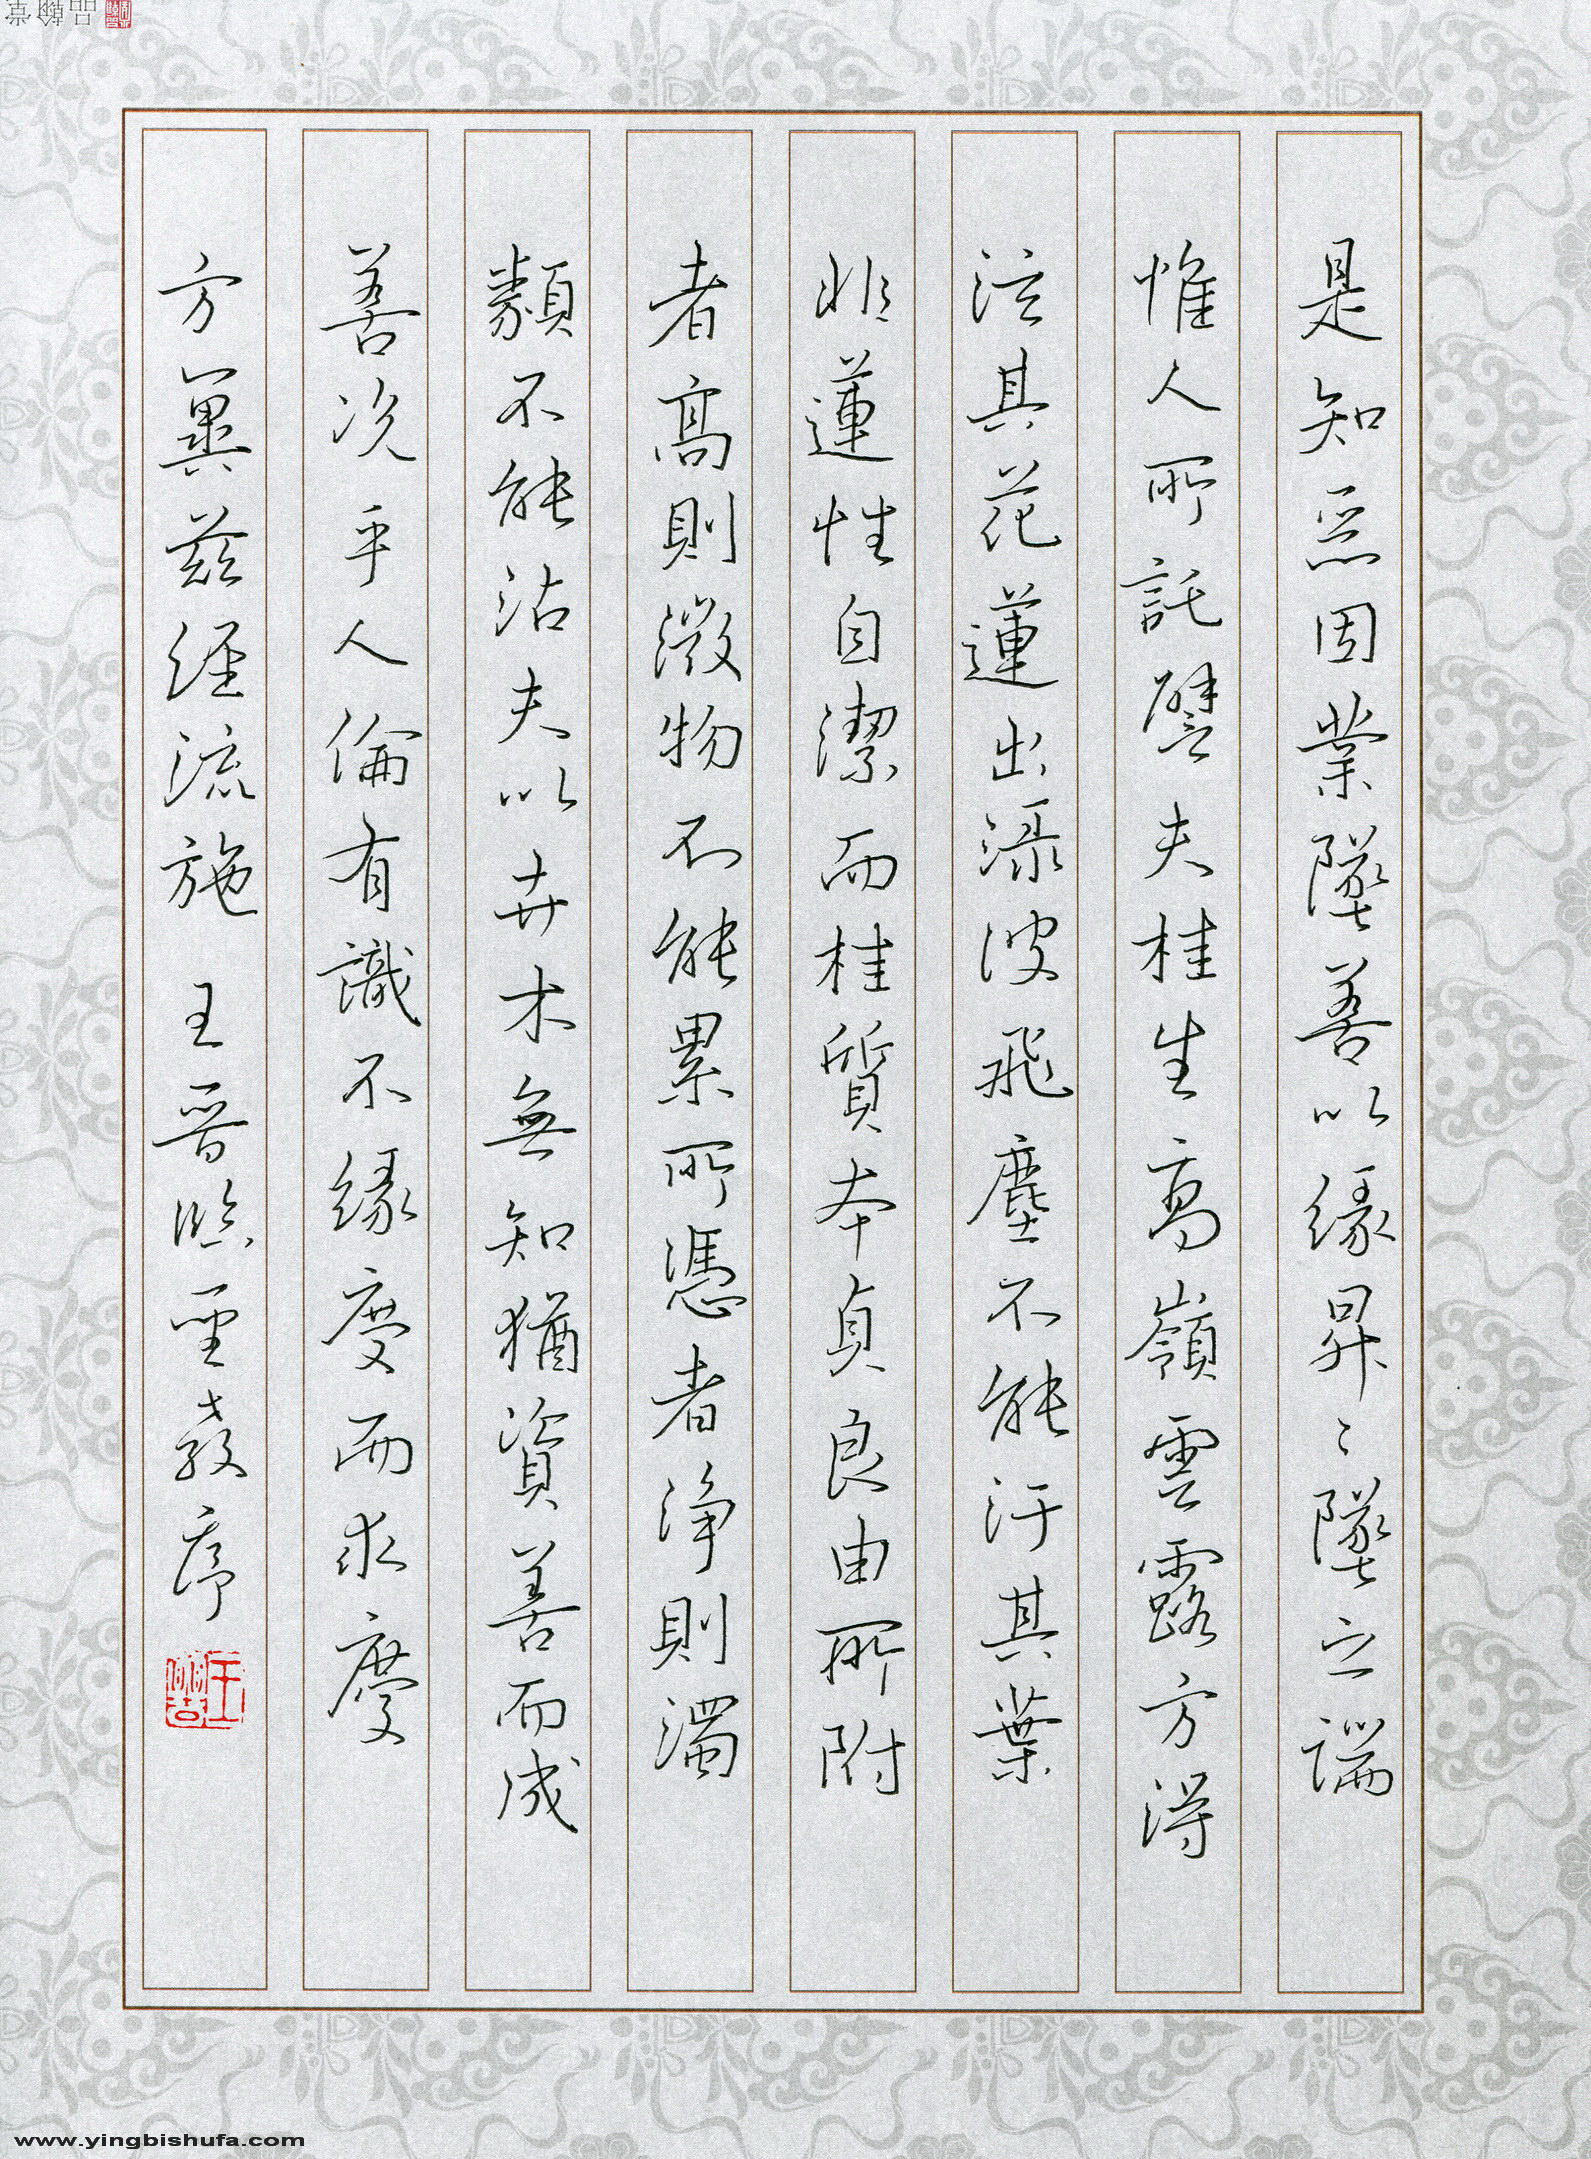 是知惡因業墜善以緣昇〻墜之端
惟人所託譬夫桂生高嶺雲露方得
泫其花蓮出淥波飛塵不能汙其葉
非蓮性自潔而桂質本貞良由所附
者高則微物不能累所憑者淨則濁
類不能沾夫以卉木無知猶資善而成
善況乎人倫有識不緣慶而求慶
方冀茲經流施 王晋臨聖教序
品翰堂
www.yingbishufa.com